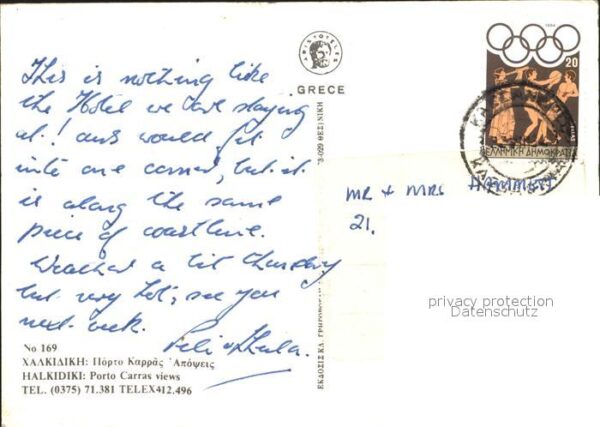 This is nothing like
the Hotel we are staying
at! ours would fit
into one corner, but it
is along the same
piece of coastline.
Weather a bit thundery
but very hot, see you
next week.
Νο 169
ΧΑΛΚΙΔΙΚΗ: Πόρτο Καρράς Ἀπόψεις
HALKIDIKI: Porto Carras views
TEL. (0375) 71.381 TELEX412.496
ARISTOTELES
GRECE
ΕΚΔΟΣΙΣ ΚΛ.
1984
20
ΕΛΛΗΝΙΚΗ ΔΗΜΟΚΡΑΤΙΑ
MR & MRS
21.
privacy protection
Datenschutz